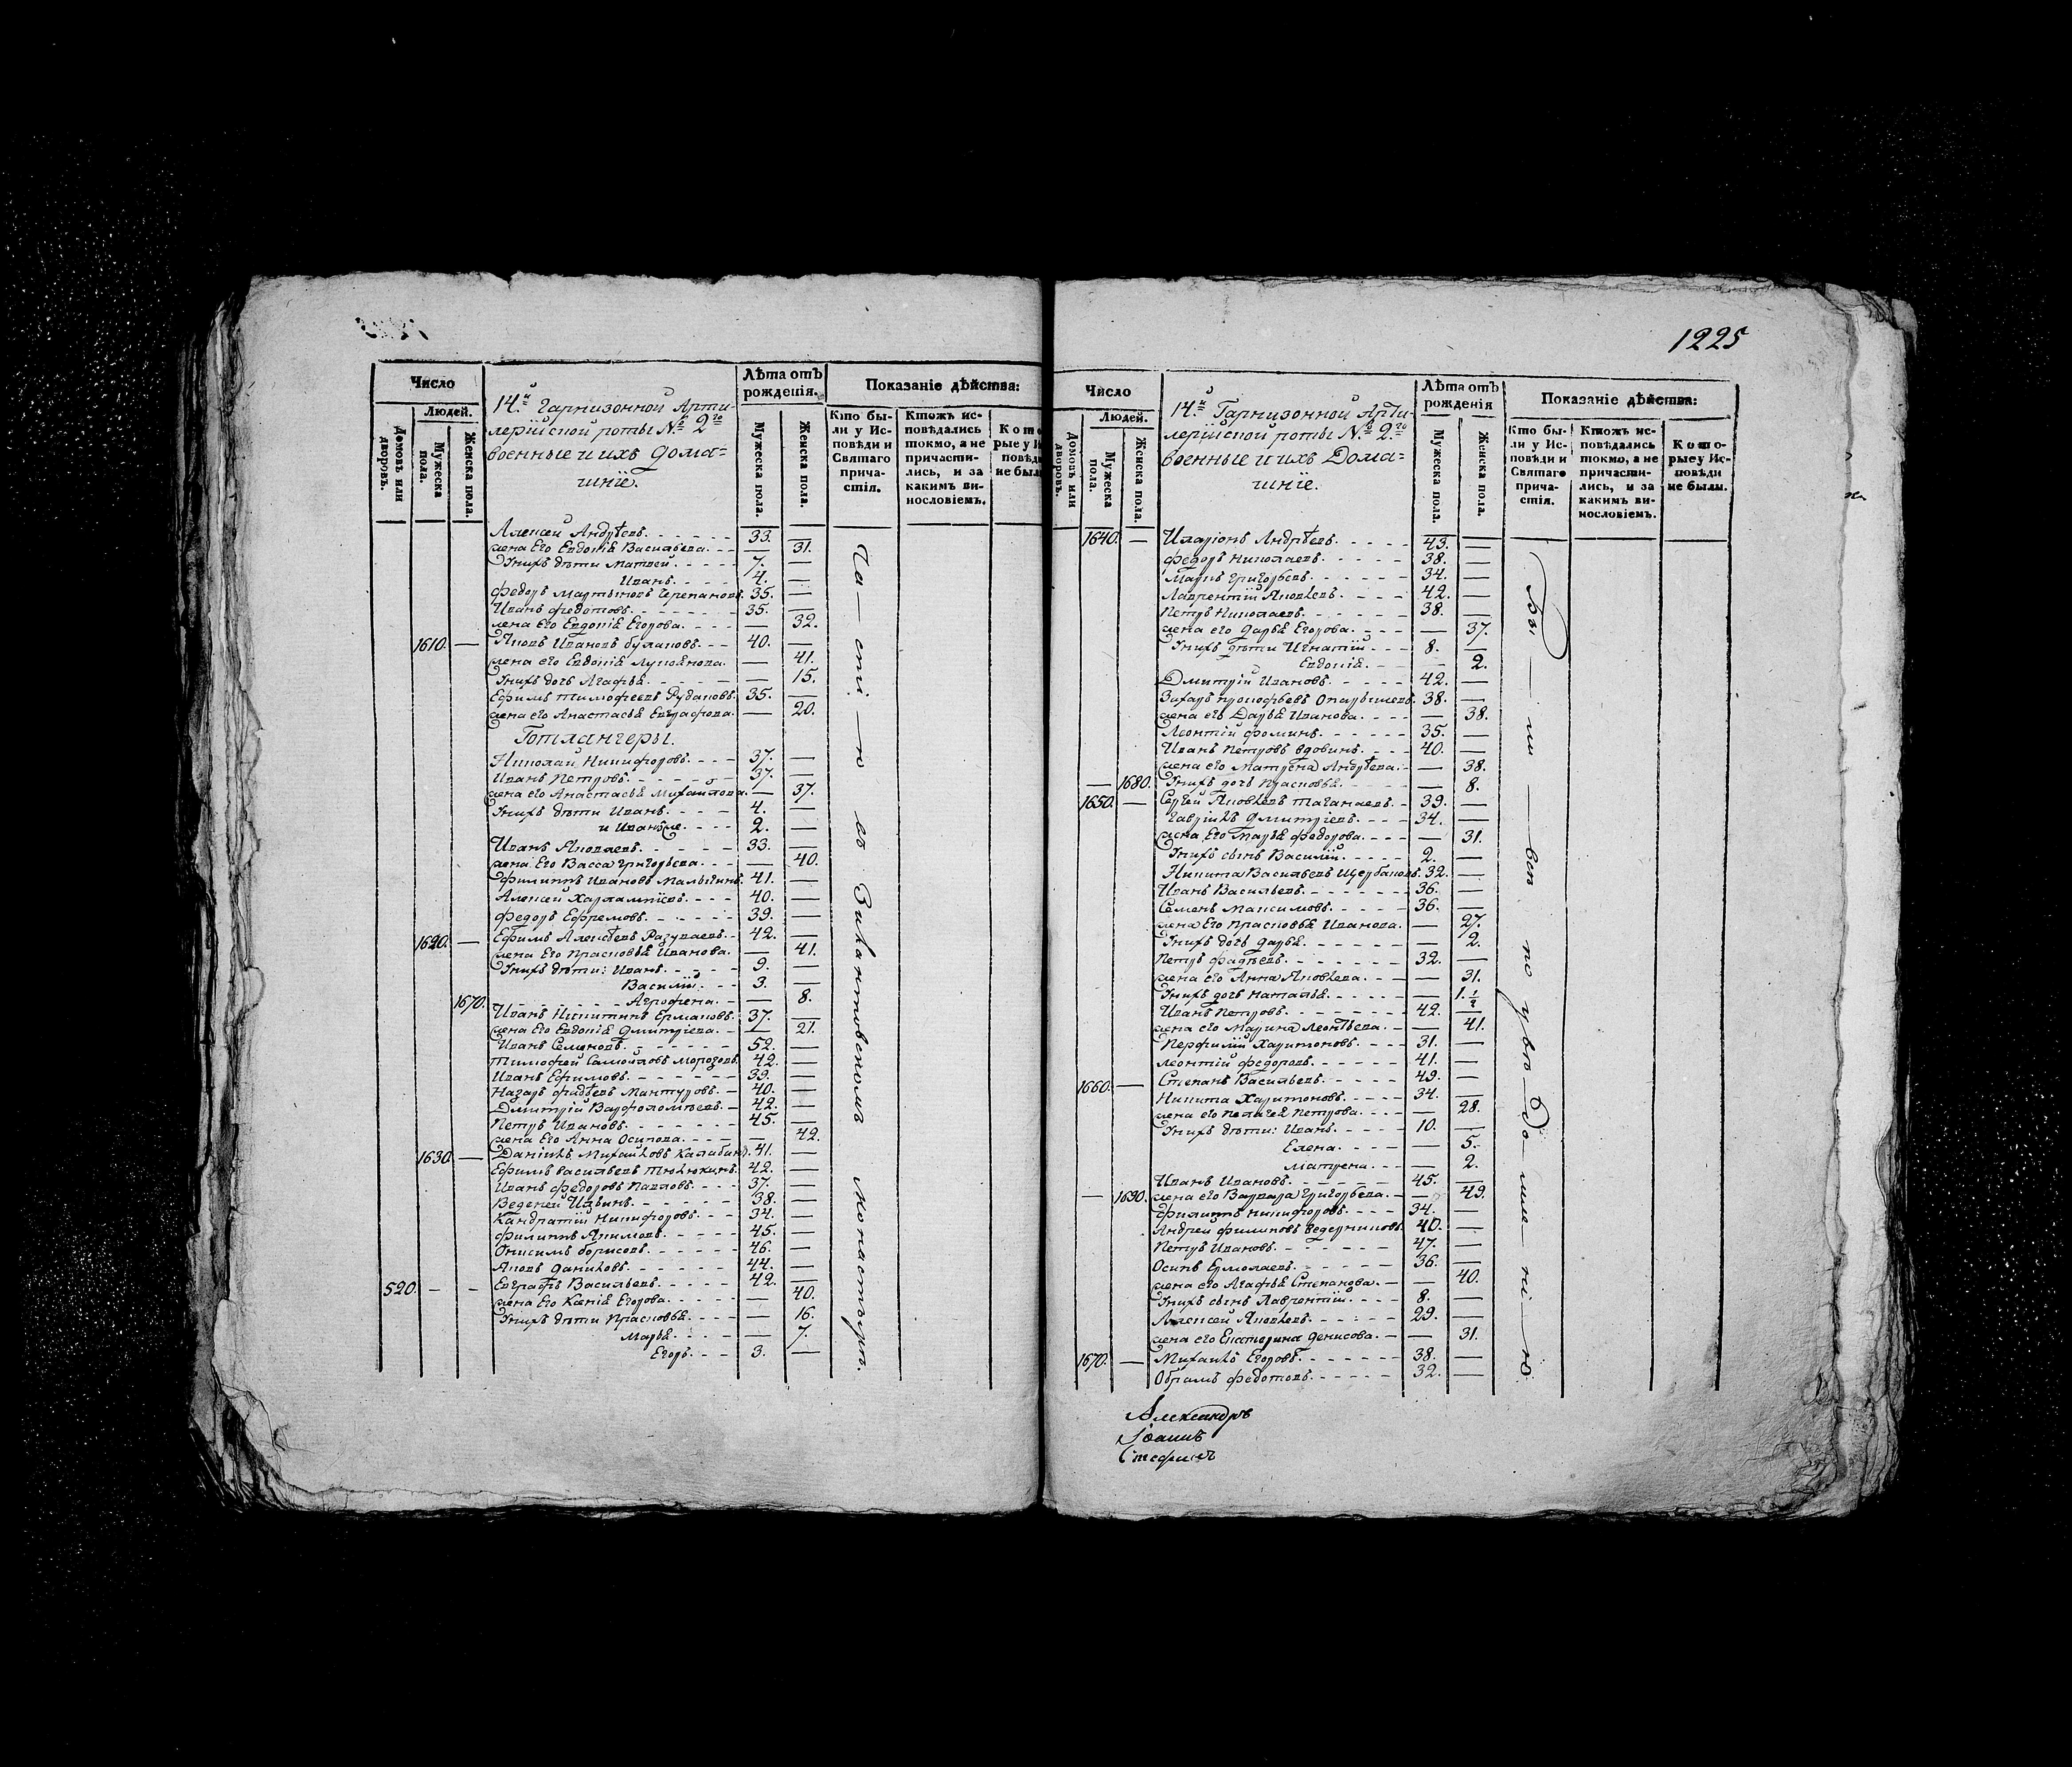 1225
Число
Людей.
Домовъ или дворовъ.
Мужеска пола.
Женска пола.
14.й Гарнизонной Арти-
лерійской роты №й 2го
военные и ихъ дома=
шніе.
Лѣта отъ рожденія.
Мужеска пола.
Женска пола.
Показаніе дѣйства:
Кто бы-
ли у Ис-
повѣди и
Святаго
прича-
стія.
Ктожъ ис-
повѣдались
токмо, а не
причасти-
лись, и за
какимъ ви-
нословіемъ.
Кото
рые у И
повѣд
не был
Алексей Андрѣевъ. 33. —
жена Его Евдокіѣ Васильева. — 31.
Унихъ дѣти Матвей. 7. —
Иванъ. 4. —
Федоръ Мартыновъ Черепановъ. 35. —
Иванъ Федотовъ. 35. —
жена Его Евдокіѣ Егорова. — 32.
1610. — Яковъ Ивановъ Булановъ. 40. —
жена его Евдокіѣ Лукоѣнова. — 41.
Унихъ дочь Агафьѣ. — 15.
Ефимъ Тимофеевъ Рудаковъ. 35. —
жена его Анастасьѣ Евграфова. — 20.
Готлангеры.
Николай Никифоровъ. 37. —
Иванъ Петровъ. 37. —
жена его Анастасьѣ Михайлова. — 37.
Унихъ дѣти Иванъ. 4. —
и Иванже. 2. —
Иванъ Яковлевъ. 33. —
жена Его Васса Григорьева. — 40.
Филиппъ Ивановъ Малыгинъ. 41. —
Алексей Харлампіевъ. 40. —
Федоръ Ефремовъ. 39. —
1620. — Ефимъ Алексѣевъ Разуваевъ. 42. —
жена Его Прасковьѣ Иванова. — 41.
Унихъ дѣти: Иванъ. 9. —
Василій. 3. —
1670. Агрофена. — 8.
Иванъ Никитинъ Ермаковъ. 37. —
жена Его Евдокіѣ Дмитріева. — 21.
Иванъ Семеновъ. 52. —
Тимофей Самойловъ Морозовъ. 42. —
Иванъ Ефимовъ. 39. —
Назаръ Фадѣевъ Мантуровъ. 40. —
Дмитрій Варфоломѣевъ. 42. —
Петръ Ивановъ. 45. —
жена Его Анна Осипова. — 42.
1630. — Данилъ Михайловъ Калабинъ. 41. —
Ефимъ Васильевъ Тюлюкинъ. 42. —
Иванъ Федоровъ Павловъ. 37. —
Веденей Ильинъ. 38. —
Кандратій Никифоровъ. 34. —
Филиппъ Якимовъ. 45. —
Онисимъ Борисовъ. 46. —
Яковъ Даниловъ. 44. —
520. - - Евграфъ Васильевъ. 42. —
жена Его Ксеніѣ Егорова. — 40.
Унихъ дѣти Прасковьѣ. — 16.
Марьѣ. — 7.
Егоръ. 3. —
Ча — сті — ю въ Монастырѣ.
Число
Людей.
Домовъ или дворовъ.
Мужеска пола.
Женска пола.
14.й Гарнизонной Арти-
лерійской роты №й 2го
военные и ихъ Дома=
шніе.
Лѣта отъ рожденія
Мужеска пола.
Женска пола.
Показаніе дѣйства:
Кто бы-
ли у Ис-
повѣди и
Святаго
прича-
стія.
Ктожъ ис-
повѣдались
токмо, а не
причасти-
лись, и за
какимъ ви-
нословіемъ.
Кото-
рые у Ис-
повѣди
не были.
1640. — Иларіонъ Андрѣевъ. 43. —
Федоръ Николаевъ. 38. —
Маркъ Григорьевъ. 34. —
Лаврентій Яковлевъ. 42. —
Петръ Николаевъ. 38. —
жена его Дарьѣ Егорова. — 37.
Унихъ дѣти Игнатій. 8. —
Евдокіѣ. — 2.
Дмитрій Ивановъ. 42. —
Захаръ Прокофьевъ 38. —
жена его Дарьѣ Иванова. — 38.
Леонтій Фоминъ. 35. —
Иванъ Петровъ Вдовинъ. 40. —
жена его Матрена Андрѣева. — 38.
— 1680. Унихъ дочь Прасковьѣ. — 8.
1650. — Сергей Яковлевъ Таганаевъ. 39. —
Гаврилъ Дмитріевъ. 34. —
жена Его Марьѣ Федорова. — 31.
Унихъ сынъ Василій. 2. —
Никита Васильевъ Щербаковъ. 32. —
Иванъ Васильевъ. 36. —
Семенъ Максимовъ. 36. —
жена Его Прасковьѣ Иванова. — 27.
Унихъ дочь Дарьѣ. — 2.
Петръ Фадѣевъ. 32. —
жена его Анна Яковлева. — 31.
Унихъ дочь Натальѣ. — 1.½
Иванъ Петровъ. 42. —
жена его Марина Леонтьева. — 41.
Перфилій Харитоновъ. 31. —
Леонтій Федоровъ. 41. —
1660. — Степанъ Васильевъ. 49. —
Никита Харитоновъ. 34. —
жена его Пелагеѣ Петрова. — 28.
Унихъ дѣти: Иванъ. 10. —
Елена. — 5.
Матрена. — 2.
Иванъ Ивановъ. 45. —
— 1690. жена его Варвара Григорьева. — 49.
Филиппъ Никифоровъ. 34. —
Андрей Филиповъ Ведерниковъ. 40. —
Петръ Ивановъ. 47. —
Осипъ Ермолаевъ. 36. —
жена его Агафьѣ Степанова. — 40.
Унихъ сынъ Лаврентій. 8. —
Алексей Яковлевъ. 29. —
жена его Екатерина Денисова. — 31.
1670. — Михайлъ Егоровъ. 38. —
Обрамъ Федотовъ. 32. —
Александръ
Іоаннъ
Стефанъ